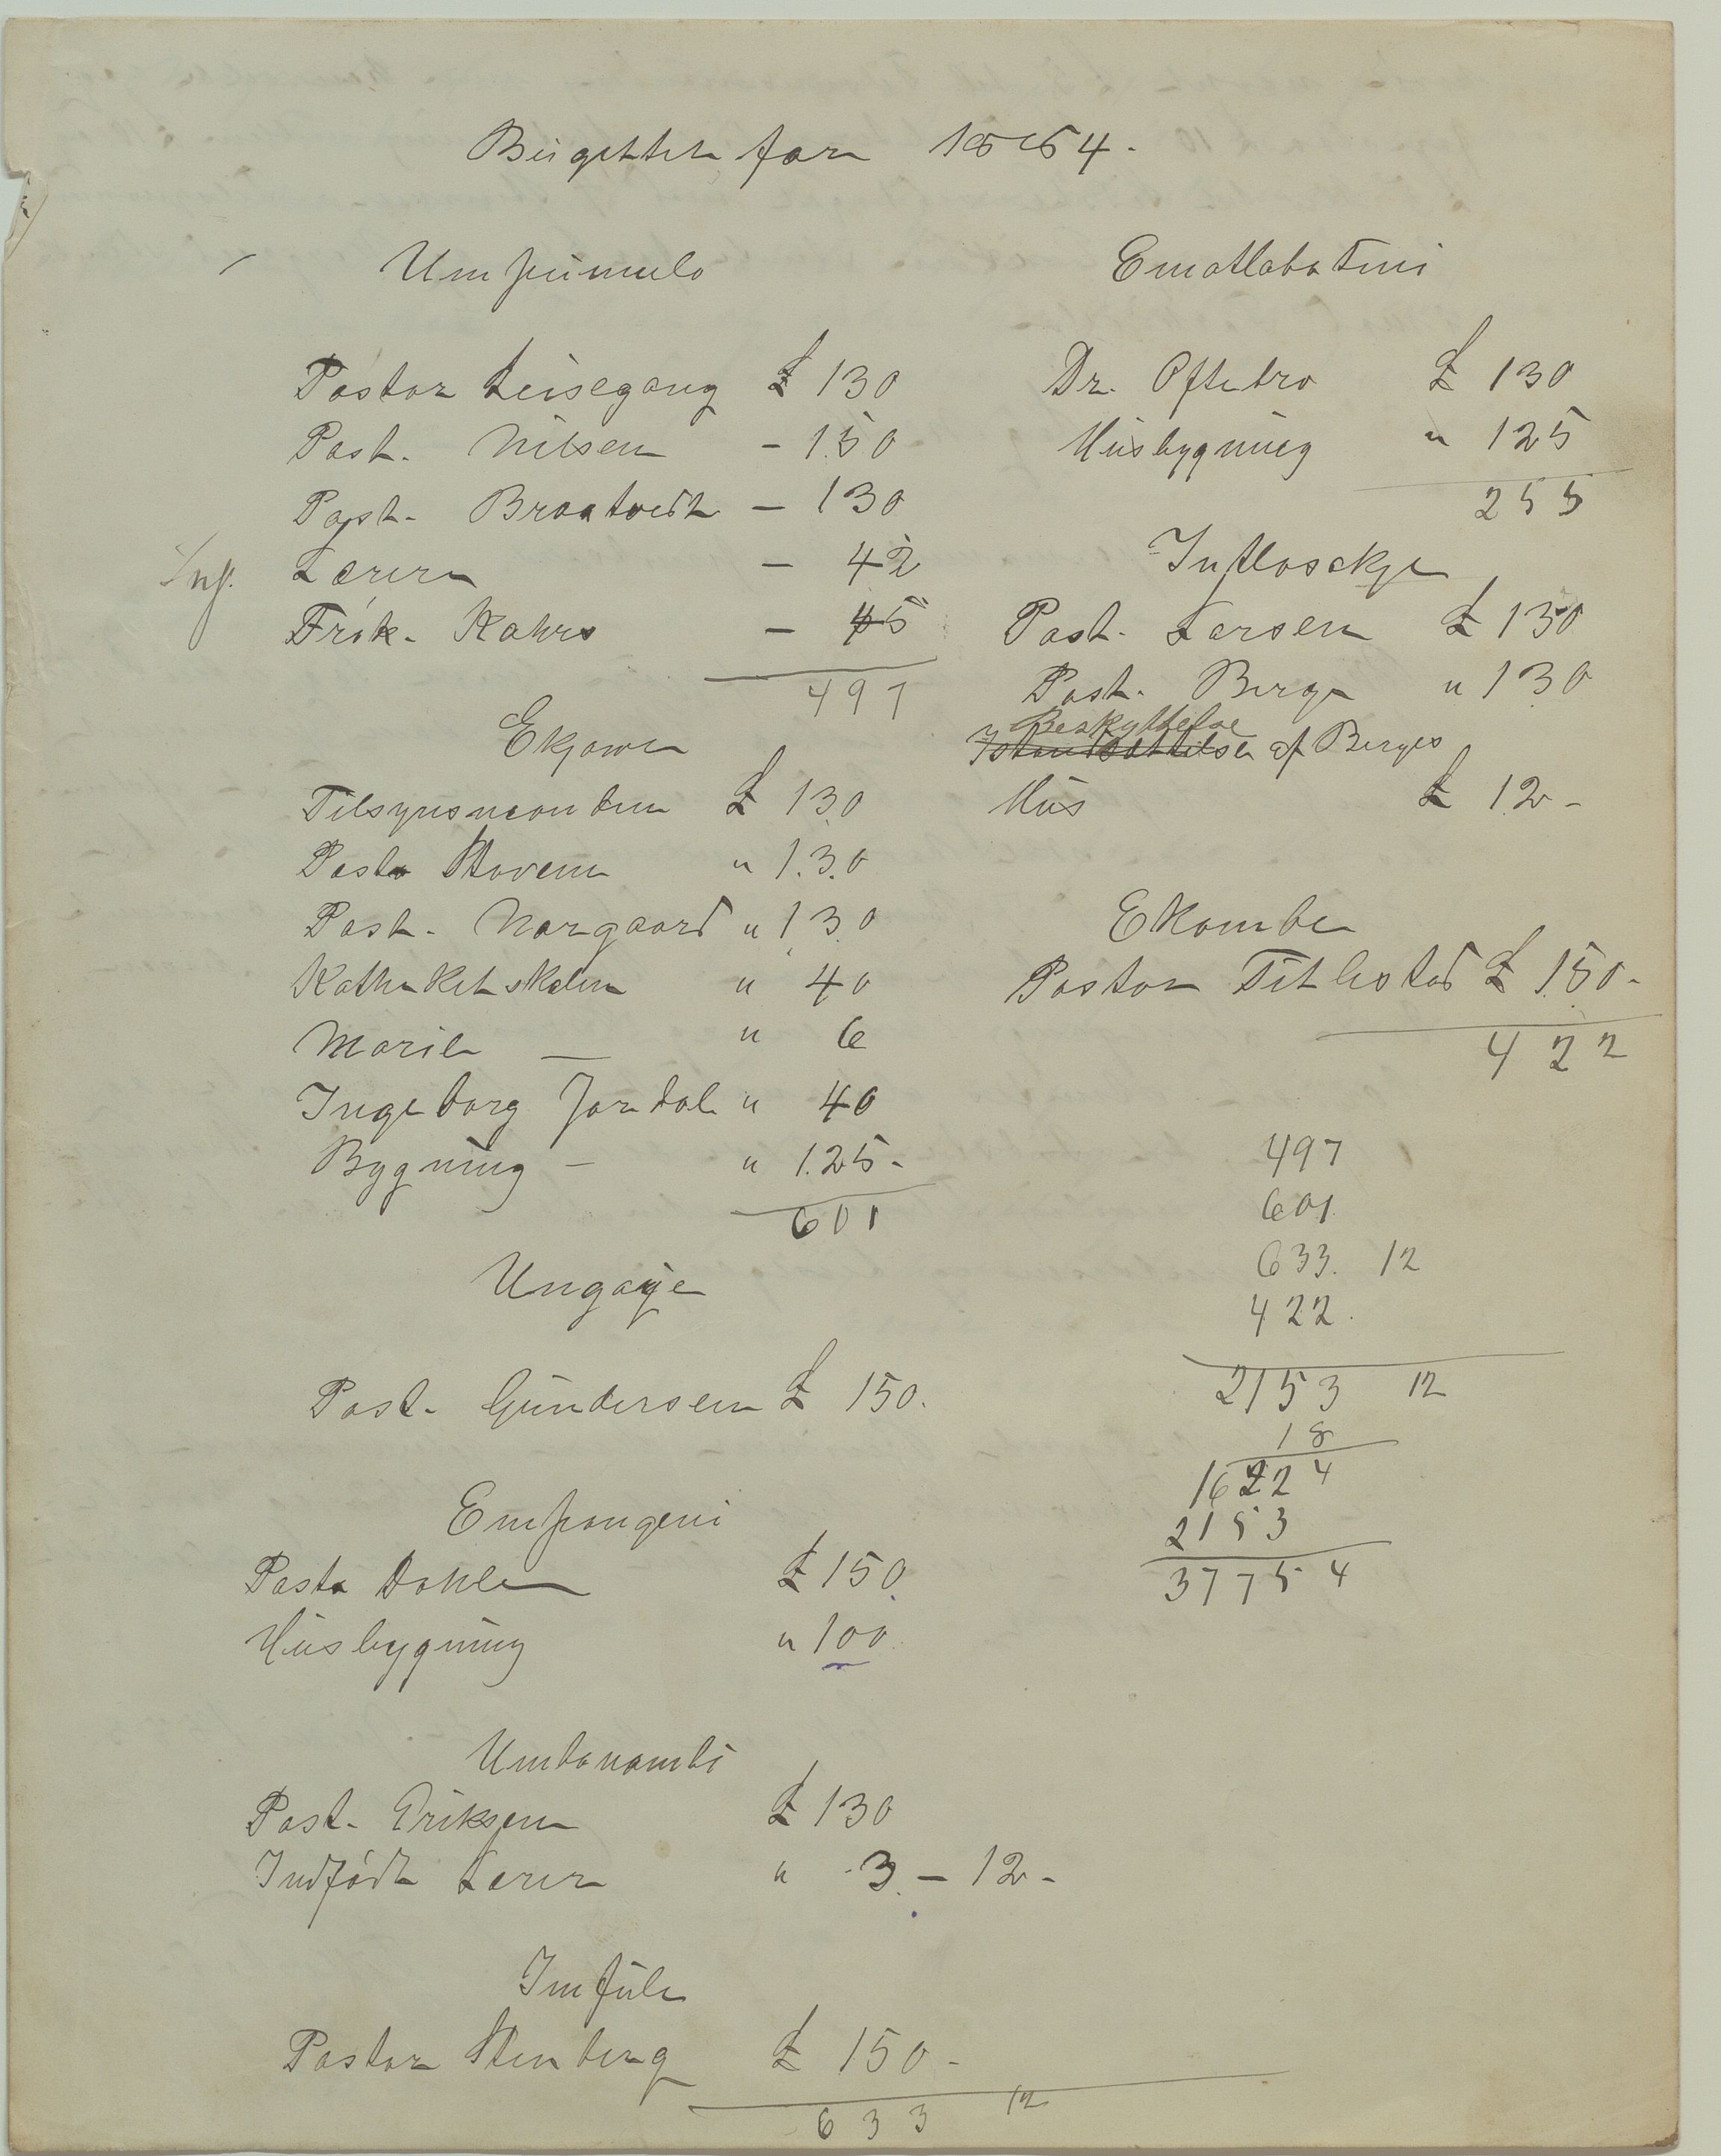 Budgettet for 1884.
Umpumulo
Pastor Leisegang £ 130
Past. Nilsen - 150
Past. Braatvedt - 130
Inf. Lærere - 42
Frøk. Kahrs - 45
497
Ekjowe
Tilsynsmanden £ 130
Pastor Stavem " 130
Past. Norgaard " 130
Kateketskolen " 40
Marie — " 6
Ingeborg Jordal " 40
Bygning - " 125-
601
Ungoye
Past. Gundersen £ 150.
Empangeni
Pastor Dahle £ 150
Husbygning " 100
Umbonambi
Past. Eriksen £ 130
Indfødt Lærer " 3 - 12 -
Imfule
Pastor Stenberg £ 150 -
633 12
Ematlabatini
Dr. Oftebro £ 130
Husbygning " 125
255
Intlosakye
Past. Larsen £ 130
Past. Berge " 130
Beskyttelse
Istandsættelse af Berges
Hus £ 12 -
Ekombe
Pastor Titlestad £ 150 -
422
497
601
633. 12
422.
2153 12
18
16224
2153
37754